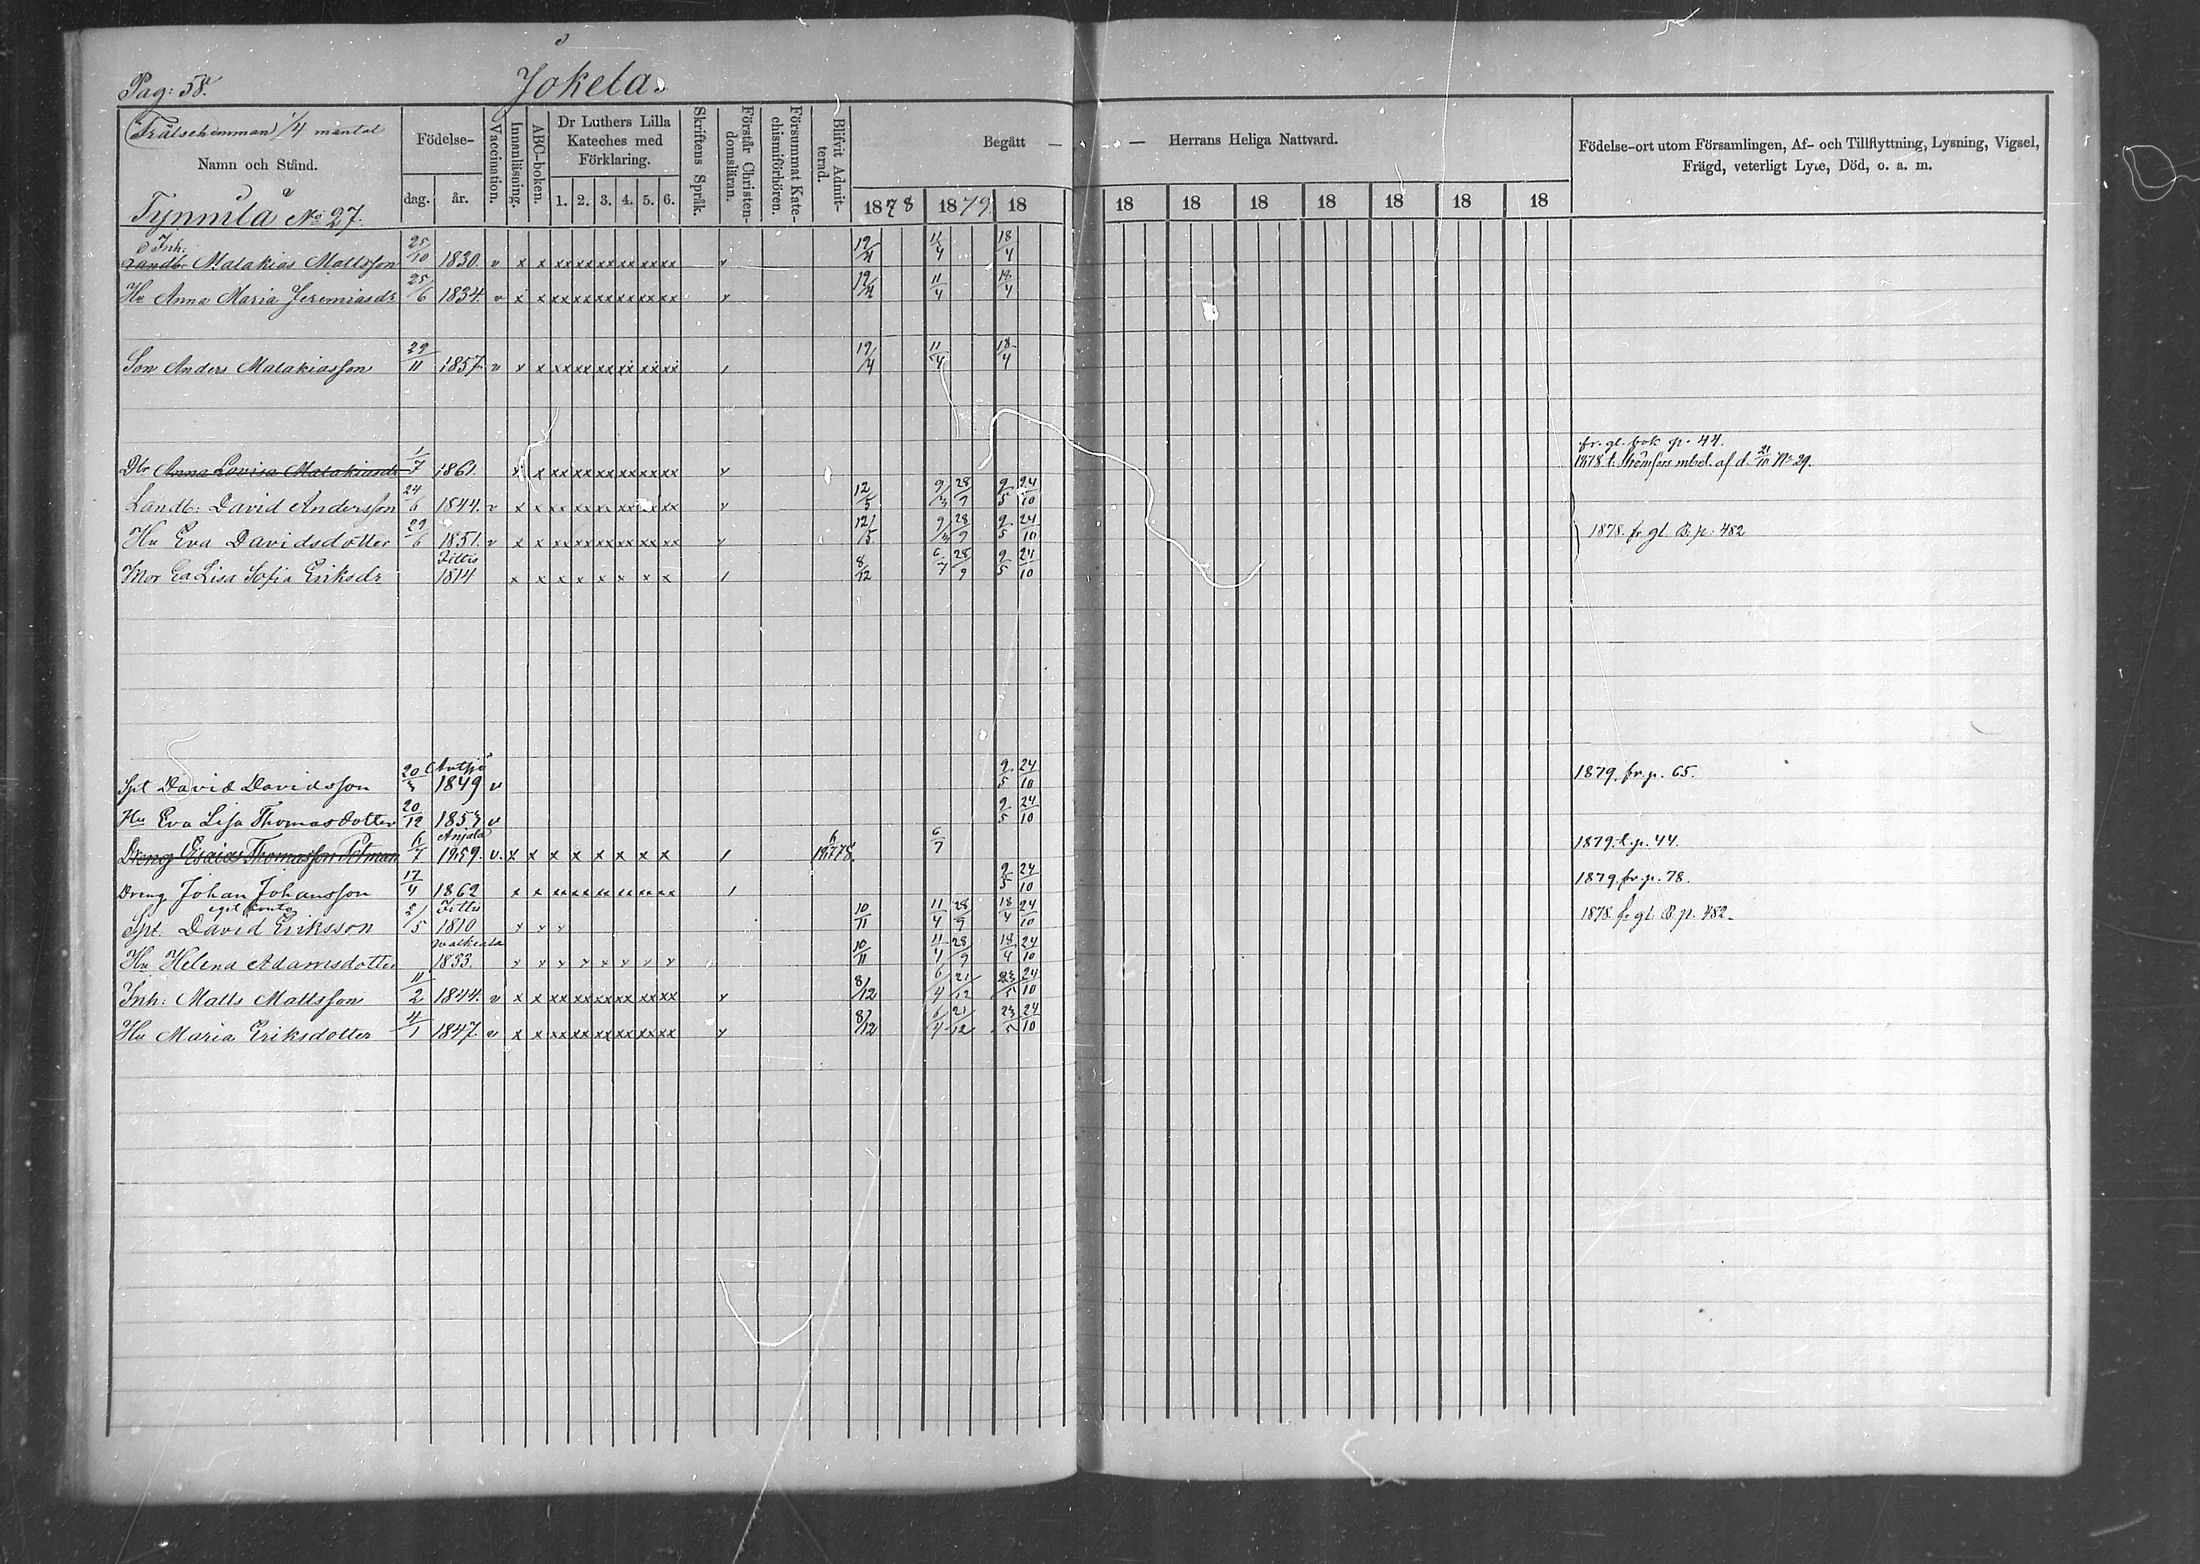 Pag: 58.
Jokela.
Frälsehemman 1/4 mantal
Namn och Stånd.
Tynnilä No 27.
Födelse-
dag.
år.
Vaccination.
Innanläsning.
ABC-boken.
Dr Luthers Lilla Kateches med Förklaring.
1. 2. 3. 4. 5. 6.
Skriftens Språk.
Förstår Christendomsläran.
Försummat Katechismiförhören.
Blifvit Admitterad.
Begått — — Herrans Heliga Nattvard.
1878 1879 18 18 18 18 18 18 18 18
Födelse-ort utom Församlingen, Af- och Tillflyttning, Lysning, Vigsel, Frägd, veterligt Lyte, Död, o. a. m.
Inh:
Landb. Malakias Mattsson 25/10 1830. v x x xx xx xx xx xx xx v 19/4 11/4 18/4
Hu Anna Maria Jeremiasdr 25/6 1834. v x x xx xx xx xx xx xx v 19/4 11/4 18/4
Son Anders Malakiasson 29/11 1857. v x x xx xx xx xx xx xx 19/4 11/4 18/4
fr. gl. bok p. 44.
Dtr Anna Lovisa Malakiasdr 1/7 1861. x x xx xx xx xx xx xx v 1878 t. Strömfors mbd. af d. 21/10 No 29.
Landb: David Andersson 24/6 1844. v x x xx xx xx xx xx xx v 12/5 9/3 28/9 9/5 24/10
Hu Eva Davidsdotter 29/6 1851. v x x xx xx xx xx xx xx v 12/5 9/3 28/9 9/5 24/10 1878. fr gl. B. p. 482
Mor Ea Lisa Sofia Eriksdr 1814 x x x x x x x x 8/12 6/7 28/9 9/5 24/10
Spt David Davidsson 20/3 1849 v 9/5 24/10 1879. fr. p. 65.
Hu Eva Lisa Thomasdotter 20/12 1853 v 9/5 24/10
Anjala
Dreng Esaias Thomasson Petman 6/7 1859. v. x x x x x x x x 6/7 1879. t. p. 44.
Dreng Johan Johansson 17/4 1862 x x xx xx xx xx xx xx 9/5 24/10 1879. fr. p. 78.
eget konto
Spt. David Eriksson 2/5 1810 10/11 11/4 28/9 18/4 24/10 1878. fr gl. B. p. 482.
Hu Helena Adamsdotter 1833. 10/11 11/4 28/9 18/4 24/10
Inh: Matts Mattsson 11/2 1844. v x x xx xx xx xx xx xx v 8/12 6/4 21/12 23/5 24/10
Hu Maria Eriksdotter 4/1 1847. v x x xx xx xx xx xx xx v 8/12 6/4 21/12 23/5 24/10